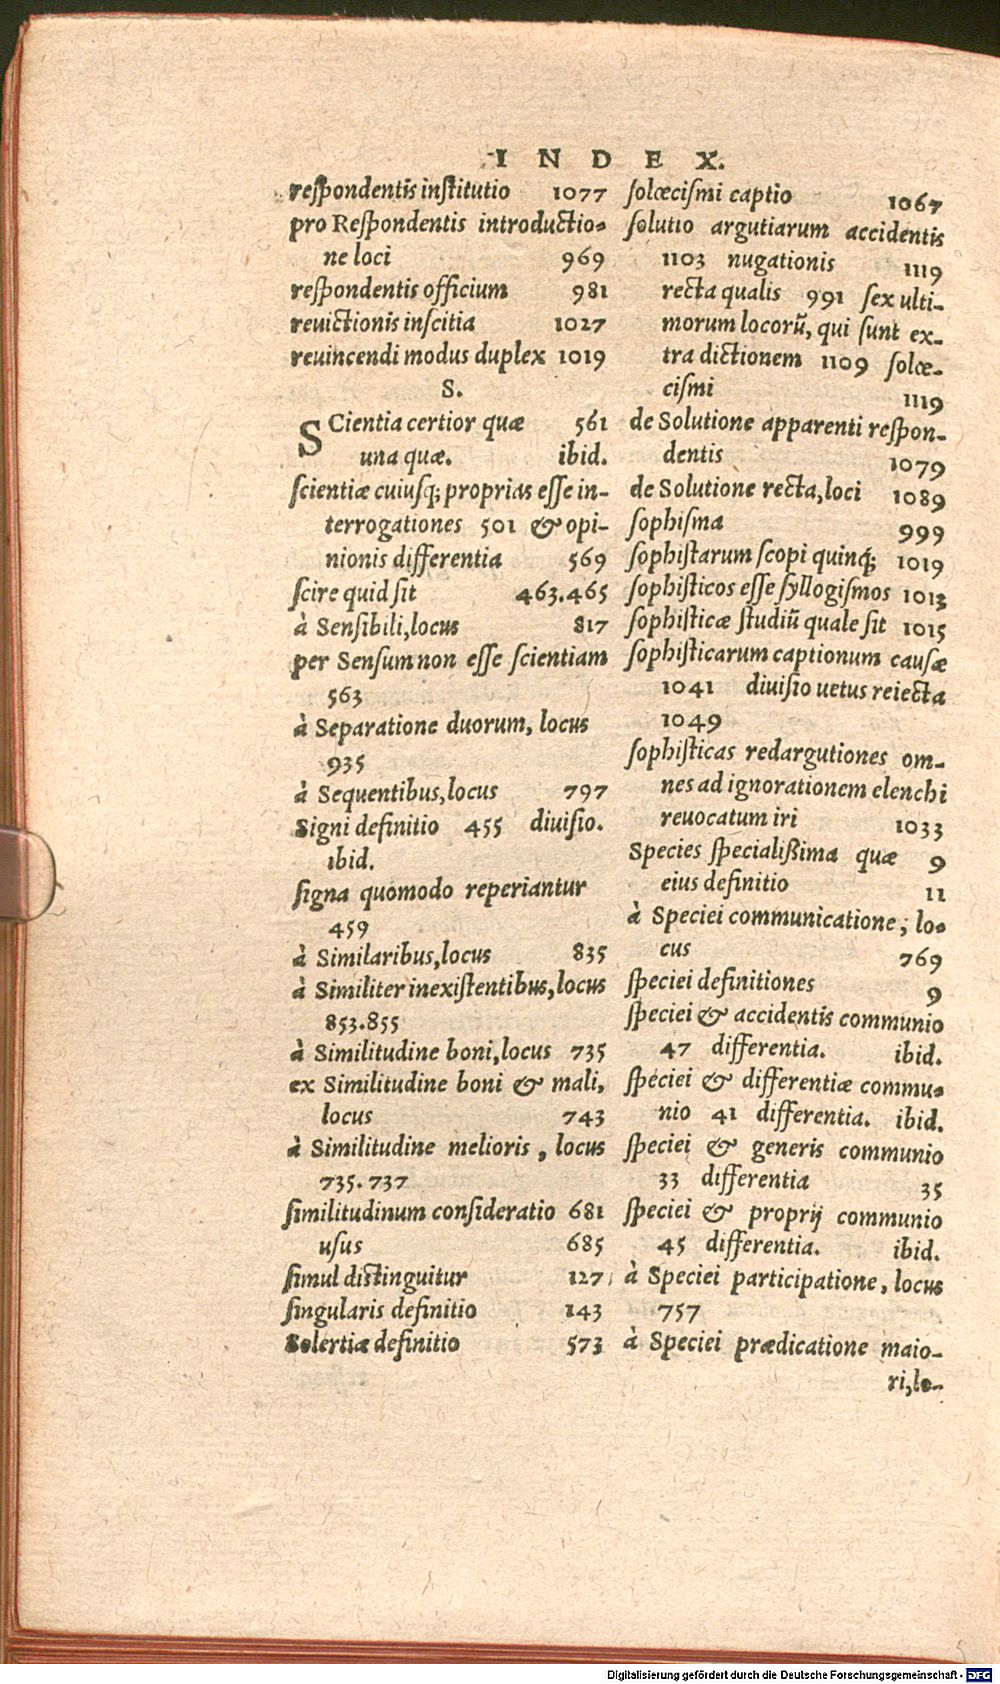 INDEX.
reſpondentis inſtitutio 1077
pro Reſpondentis introductio-
ne loci 969
reſpondentis officium 981
reuictionis inſcitia 1027
reuincendi modus duplex 1019
S.
SCientia certior quæ 561
una quæ. ibid.
ſcientiæ cuiuſq; proprias eſſe in-
terrogationes 501 & opi-
nionis differentia 569
ſcire quid ſit 463.465
à Senſibili, locus 817
per Senſum non eſſe ſcientiam
563
à Separatione duorum, locus
935
à Sequentibus, locus 797
Signi definitio 455 diuiſio.
ibid.
ſigna quomodo reperiantur
459
à Similaribus, locus 835
à Similiter inexiſtentibus, locus
853.855
à Similitudine boni, locus 735
ex Similitudine boni & mali,
locus 743
à Similitudine melioris, locus
735.737
ſimilitudinum conſideratio 681
uſus 685
ſimul diſtinguitur 127
ſingularis definitio 143
Solertiæ definitio 573
ſolœciſmi captio 1067
ſolutio argutiarum accidentis
1103 nugationis 1119
recta qualis 991 ſex ulti-
morum locorũ, qui ſunt ex-
tra dictionem 1109 ſolœ-
ciſmi 1119
de Solutione apparenti reſpon-
dentis 1079
de Solutione recta, loci 1089
ſophiſma 999
ſophiſtarum ſcopi quinq́; 1019
ſophiſticos eſſe ſyllogiſmos 1013
ſophiſticæ ſtudiũ quale ſit 1015
ſophiſticarum captionum cauſæ
1041 diuiſio uetus reiecta
1049
ſophiſticas redargutiones om-
nes ad ignorationem elenchi
reuocatum iri 1033
Species ſpecialißima quæ 9
eius definitio 11
à Speciei communicatione, lo-
cus 769
ſpeciei definitiones 9
ſpeciei & accidentis communio
47 differentia. ibid.
ſpeciei & differentiæ commu-
nio 41 differentia. ibid.
ſpeciei & generis communio
33 differentia 35
ſpeciei & proprij communio
45 differentia. ibid.
à Speciei participatione, locus
757
à Speciei prædicatione maio-
ri, lo-
Digitalisierung gefördert durch die Deutsche Forschungsgemeinschaft - DFG